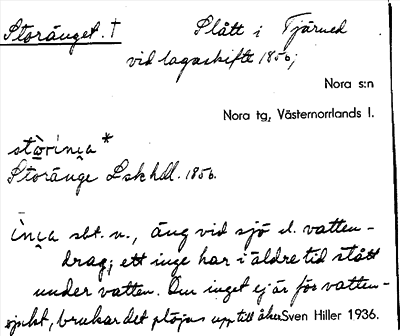 Storänget. † Slått i Tjärned
vid lagaskifte 1856;
Nora s:n
Nora tg, Västernorrlands l.
stòringa *
Storänge Lskhdl. 1856.
ìnga sbt. n., äng vid sjö el. vatten-
drag; ett inge har i äldre tid stått
under vatten. Om inget ej är för vatten-
sjukt, brukar det plöjas upp till åker. Sven Hiller 1936.